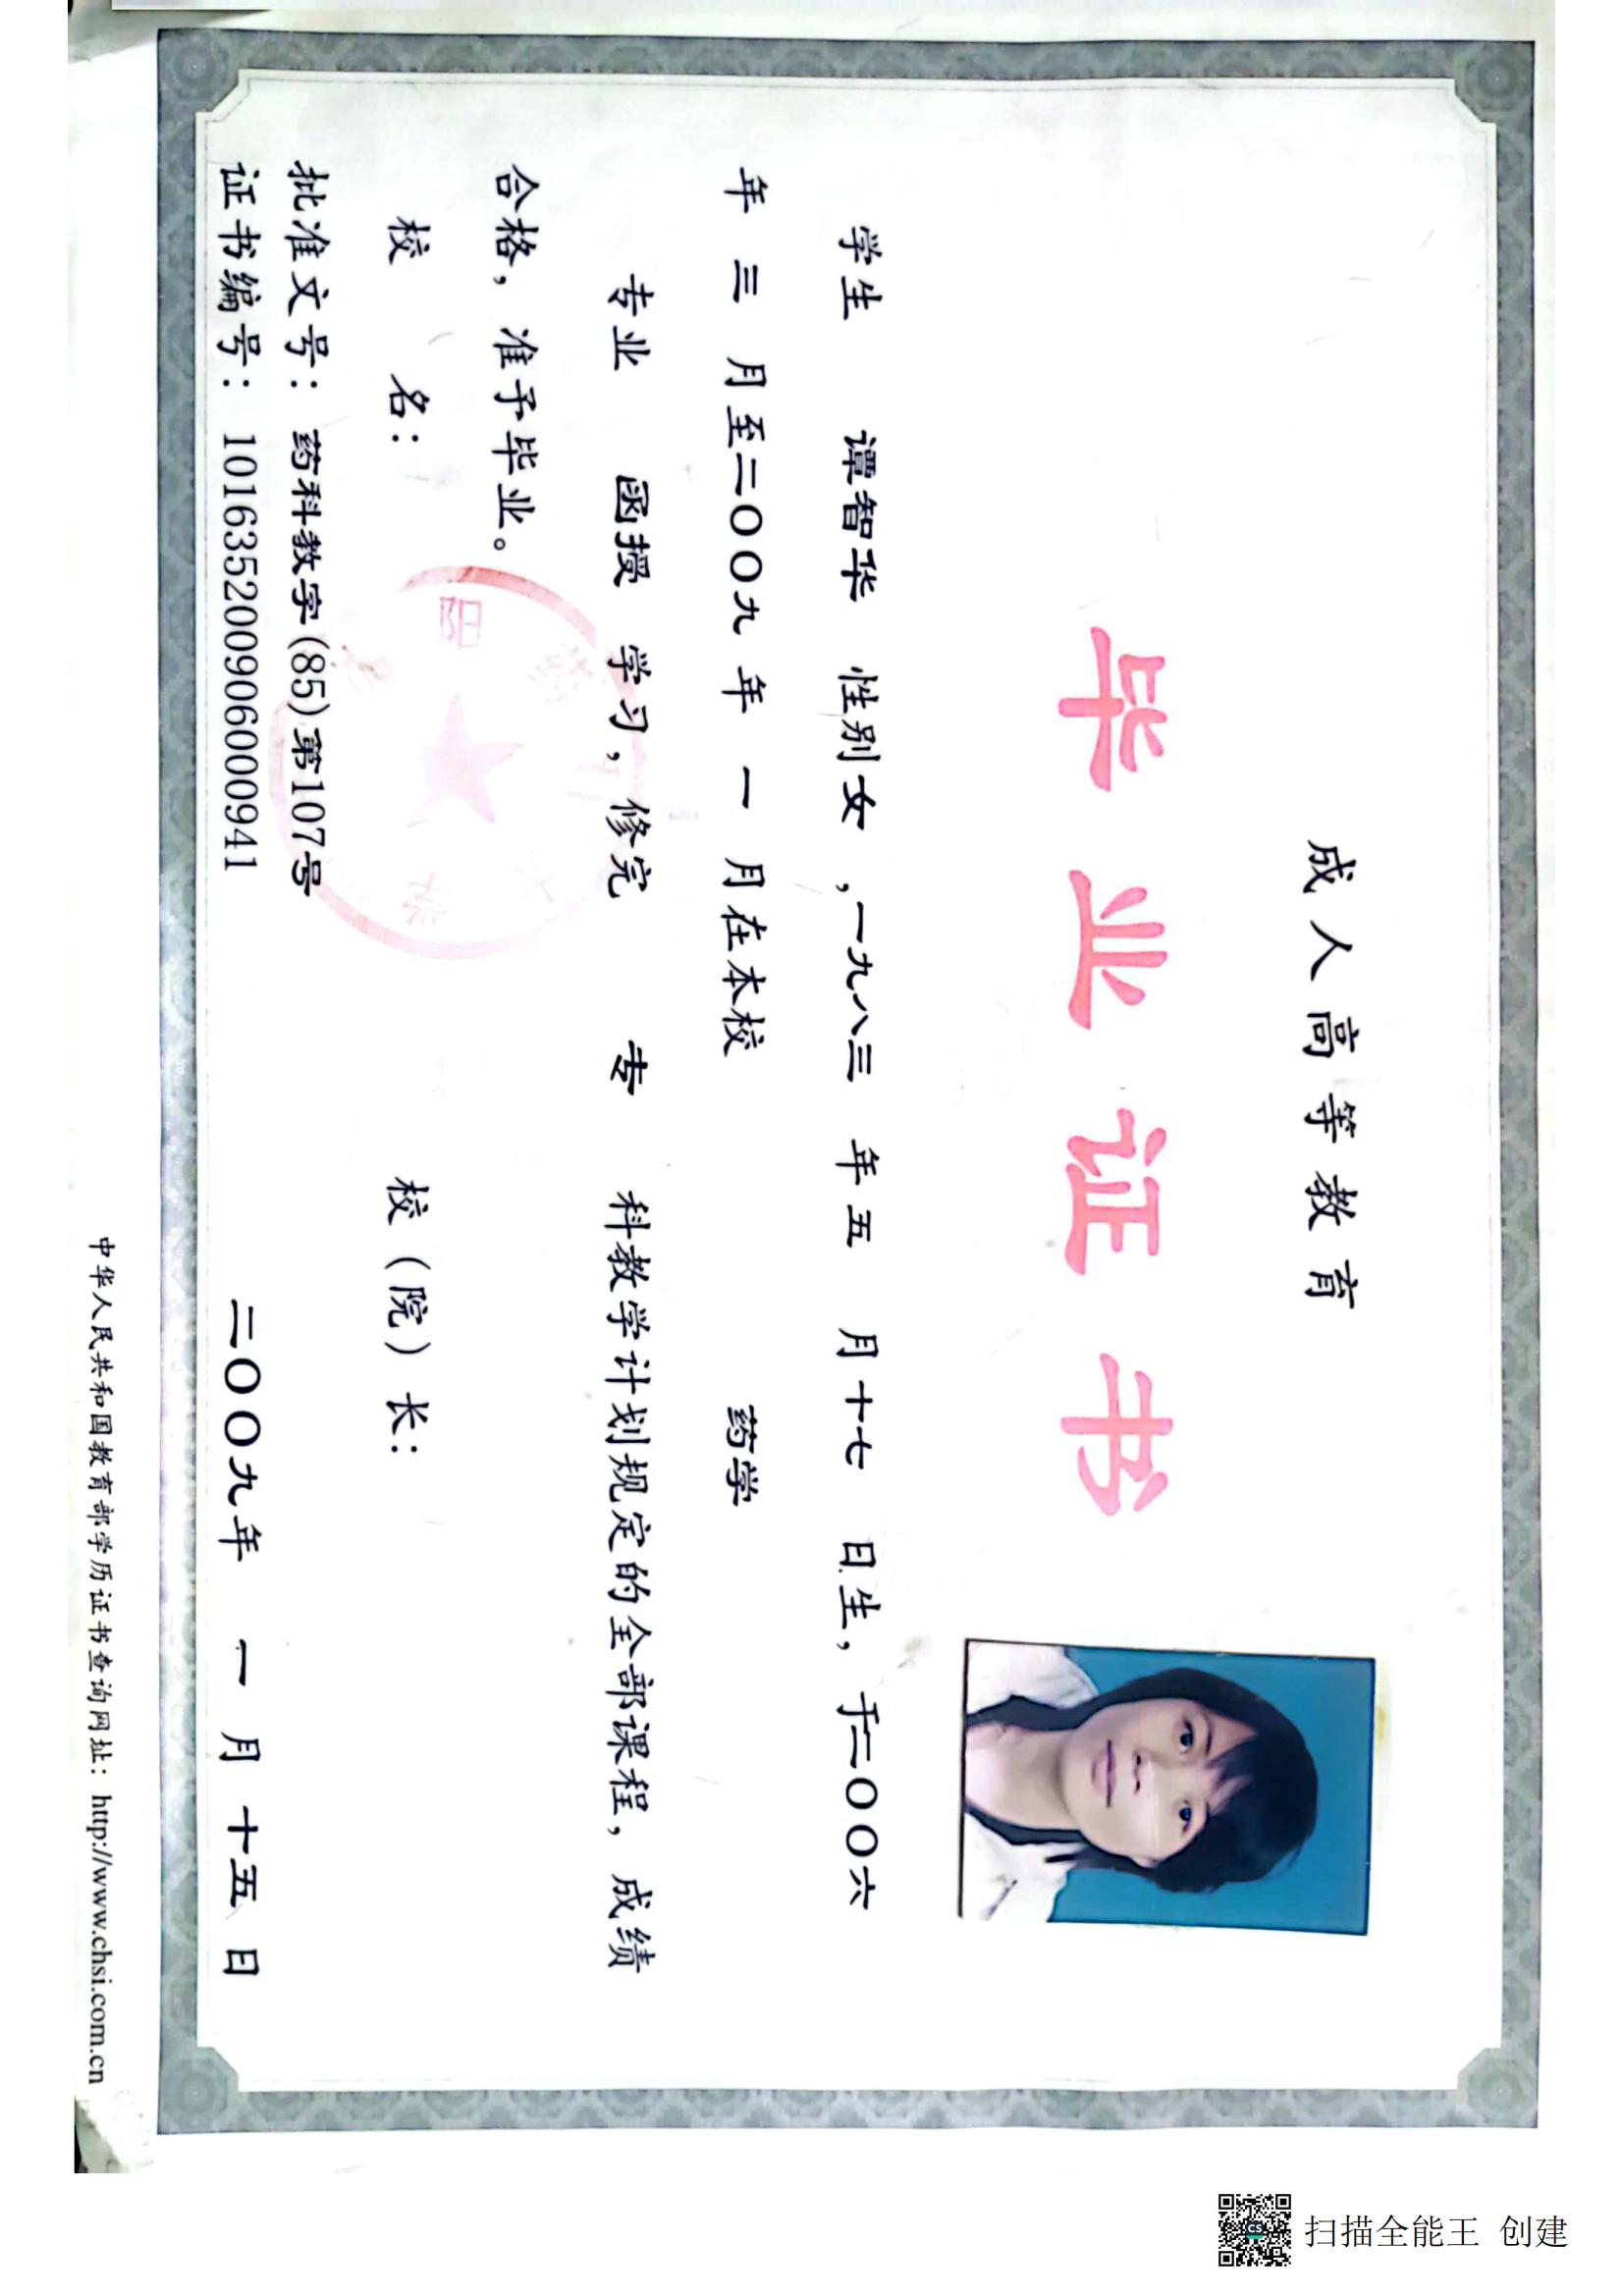 成人高等教育
毕业证书
学生 谭智华 性别女 ,一九八三 年五 月十七 日生，于二〇〇六
年 三 月至二〇〇九 年 一 月在本校 药学
专业 函授 学习，修完 专 科教学计划规定的全部课程，成绩
合格，准予毕业。
校 名： 校（院）长：
批准文号：药科教字(85)第107号
证书编号：101635200906000941 二〇〇九年 一 月 十五 日
中华人民共和国教育部学历证书查询网址：http://www.chsi.com.cn
扫描全能王 创建